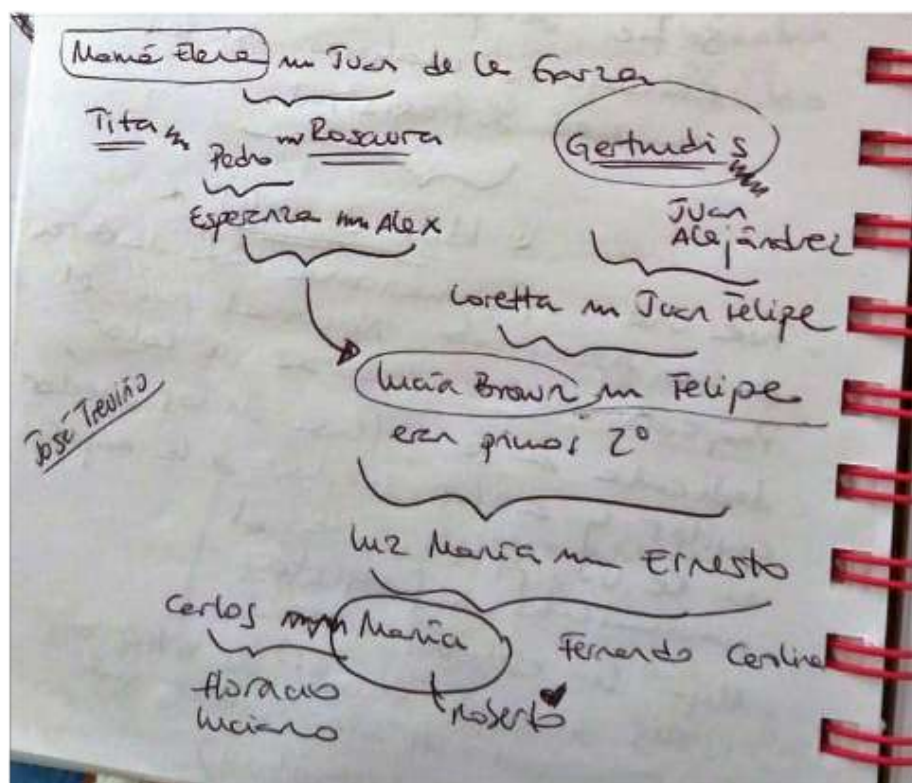 Mamá Elena m Juan de la Garza
Tita m Pedro m Rosaura
Gertrudis
Juan Alejándrez
Esperanza m Alex
Loretta m Juan Felipe
Lucía Brown m Felipe
eran primos 2º
José Treviño
Luz María m Ernesto
Carlos m María
Fernando Carolina
Horacio
Luciano
Roberto